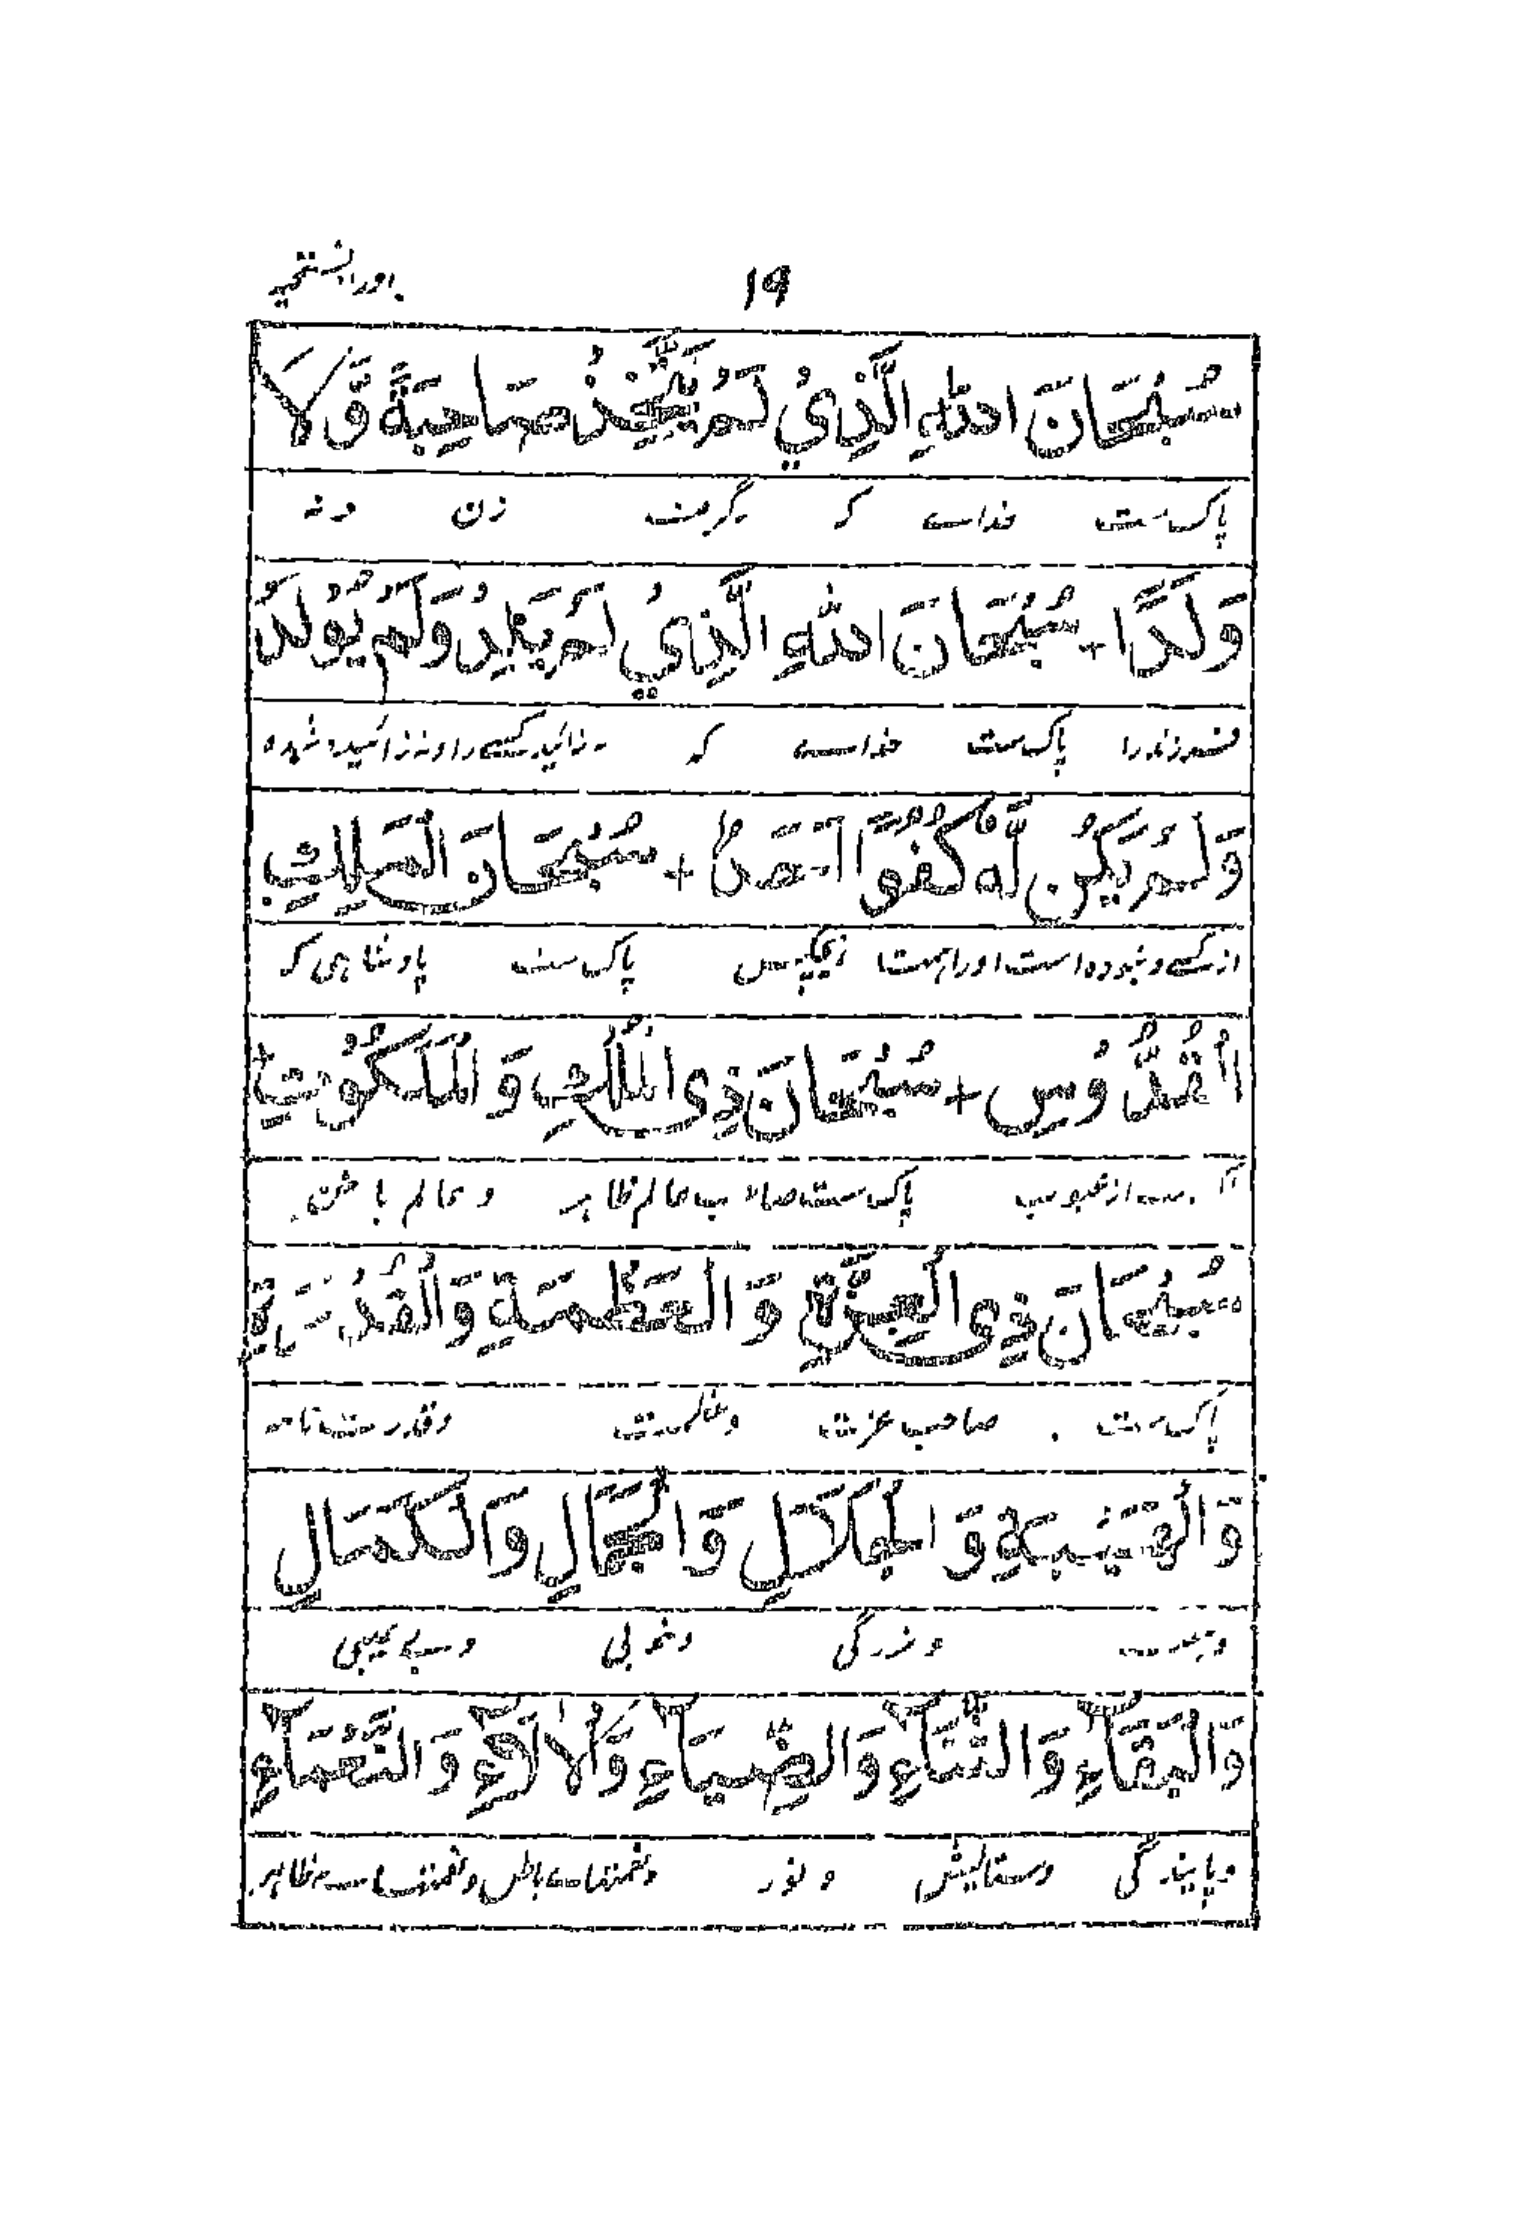 ۱۹
اوراد فتحیہ
سُبْحَانَ اللهِ الَّذِيْ لَمْ يَتَّخِذْ صَاحِبَةً وَّلَا
پاک ست خداے کہ نگرفت زن و نہ
وَلَدًا + سُبْحَانَ اللهِ الَّذِيْ لَمْ يَلِدْ وَلَمْ يُوْلَدْ
فرزند را پاک ست خداے کہ نزائید کسے را و نہ زائیدہ شدہ
وَلَمْ يَكُنْ لَّهٗ كُفُوًا اَحَدٌ + سُبْحَانَ الْمَلِكِ
از کسے و نبودہ است اورا ہمتا ہیچکس پاک ست پادشاہی کہ
الْقُدُّوْسِ + سُبْحَانَ ذِى الْمُلْكِ وَالْمَلَكُوْتِ +
از عیوب پاک ست صاحب عالم ظاہر و عالم باطن
سُبْحَانَ ذِى الْعِزَّةِ وَالْعَظَمَةِ وَالْقُدْرَةِ
پاک ست صاحب عزت و عظمت و قدرت تامہ
وَالْهَيْبَةِ وَالْجَلَالِ وَالْجَمَالِ وَالْكَمَالِ
و بزرگی و خوبی و بے عیبی
وَالْبَقَآءِ وَالثَّنَآءِ وَالضِّيَآءِ وَالْاٰلَآءِ وَالنَّعْمَآءِ
و پایندگی و ستایش و نور و نعمتہاے باطن و نعمتہاے ظاہر